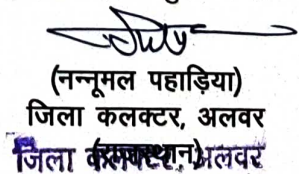 (नन्नूमल पहाड़िया)
जिला कलक्टर, अलवर
(राजस्थान)
जिला कलक्टर, अलवर